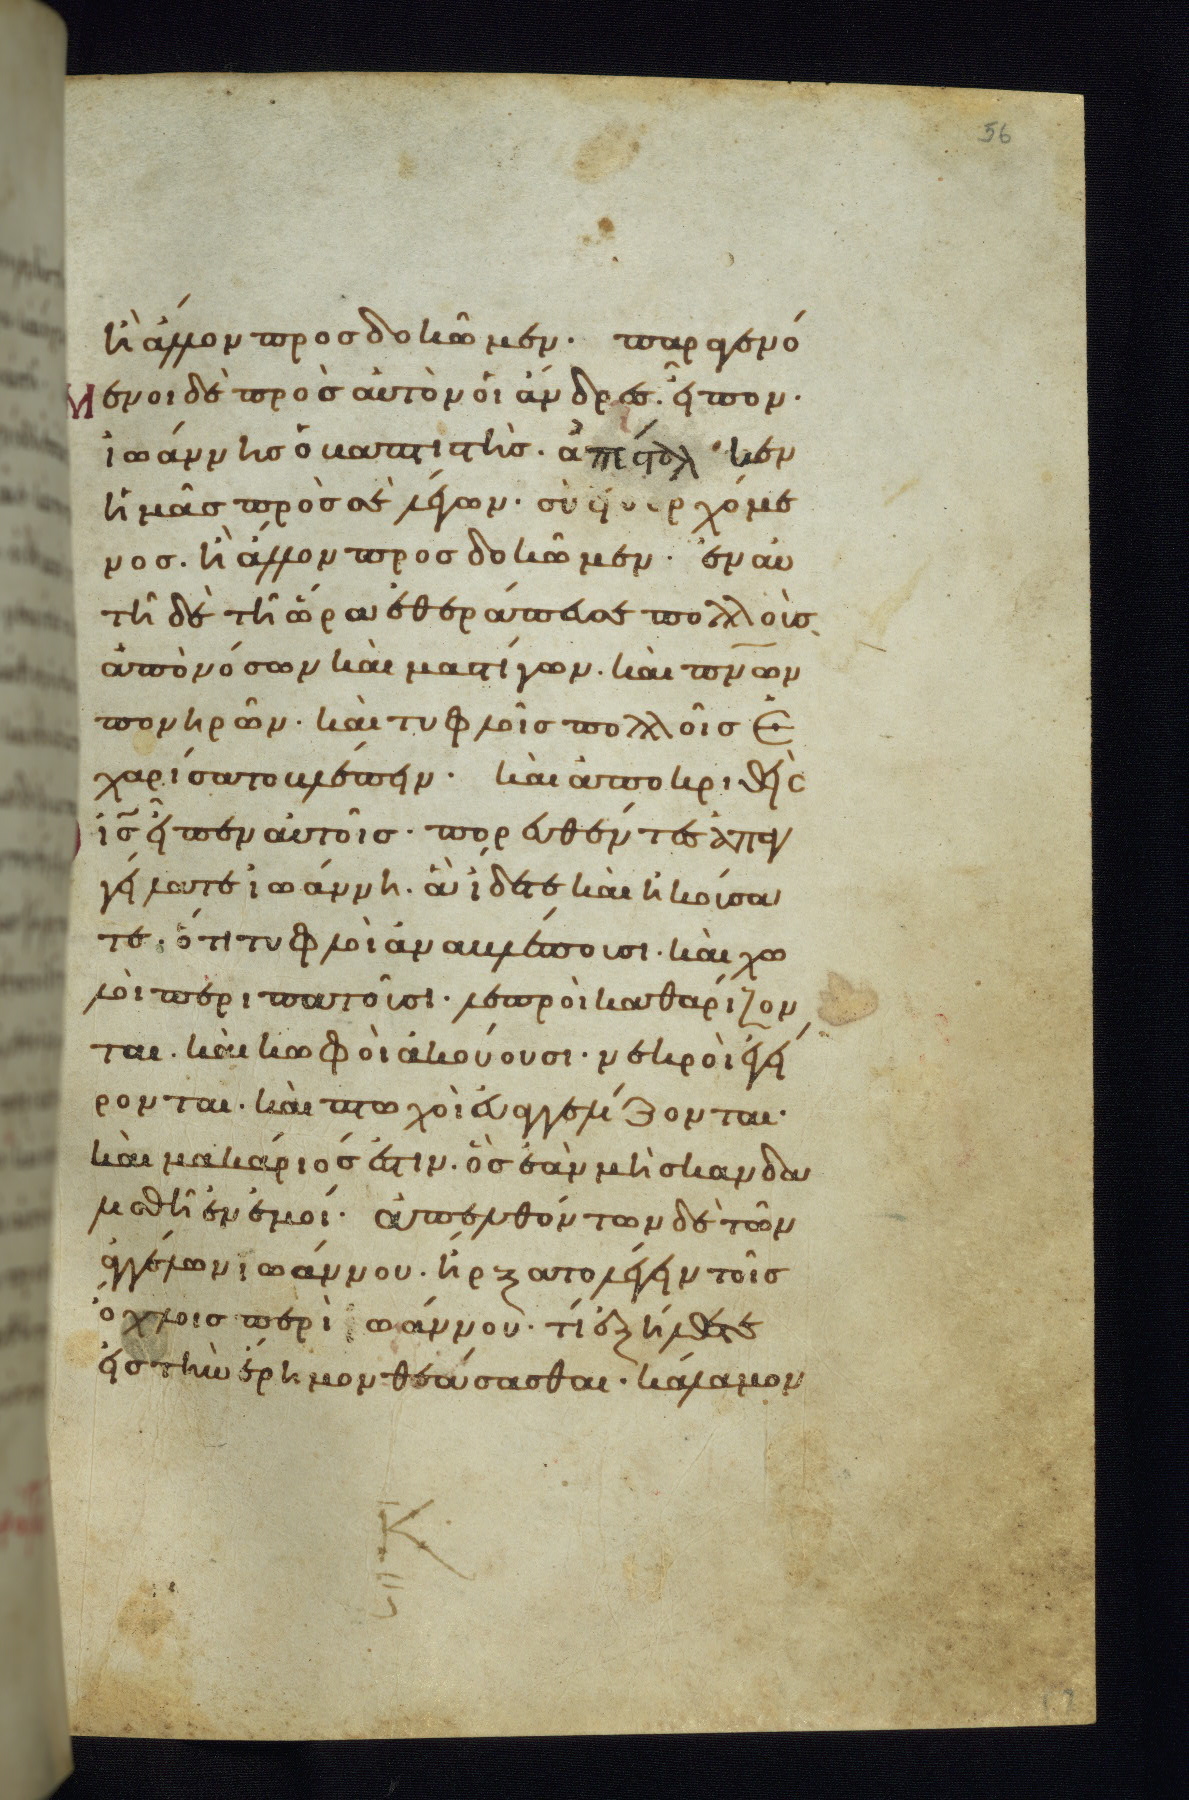 56
ἢ ἄλλον προσδοκῶμεν· παραγενό
Μενοι δὲ πρὸς αὐτὸν οἱ ἄνδρες. εἶπον·
ἰωάννης ὁ βαπτιστὴς. ἀπέσταλκεν
ἡμᾶς πρὸς σὲ λέγων· σὺ εἶ ὁ ἐρχόμε
νος. ἢ ἄλλον προσδοκῶμεν· ἐν αὐ
τῆ δὲ τῆ ὥρα ἐθεράπευσε πολλοὺς
ἀπὸ νόσων καὶ μαστίγων. καὶ πν̅ων
πονηρῶν· καὶ τυφλοῖς πολλοῖς ἐ
χαρίσατο βλέπειν· καὶ ἀποκριθεὶς
ἰς̅ εἶπεν αὐτοῖς· πορευθέντες ἀπαγ
γείλατε ἰωάννη. ἃ εἴδετε καὶ ἠκούσα
τε. ὅτι τυφλοὶ ἀναβλέπουσι. καὶ χω
λοὶ περιπατοῦσι. λεπροὶ καθαρίζον
ται. καὶ κωφοὶ ἀκούουσι. νεκροὶ ἐγεί
ρονται. καὶ πτωχοὶ εὐαγγελίζονται.
καὶ μακάριός ἐστιν. ὃς ἐὰν μὴ σκανδα
λισθῆ ἐν ἐμοί· ἀπελθόντων δὲ τῶν
ἀγγέλων ἰωάννου. ἤρξατο λέγειν τοῖς
ὄχλοις περὶ ἰωάννου· τί ἐξήλθετε
εἰς τὴν ἔρημον θεάσασθαι. κάλαμον
Κ